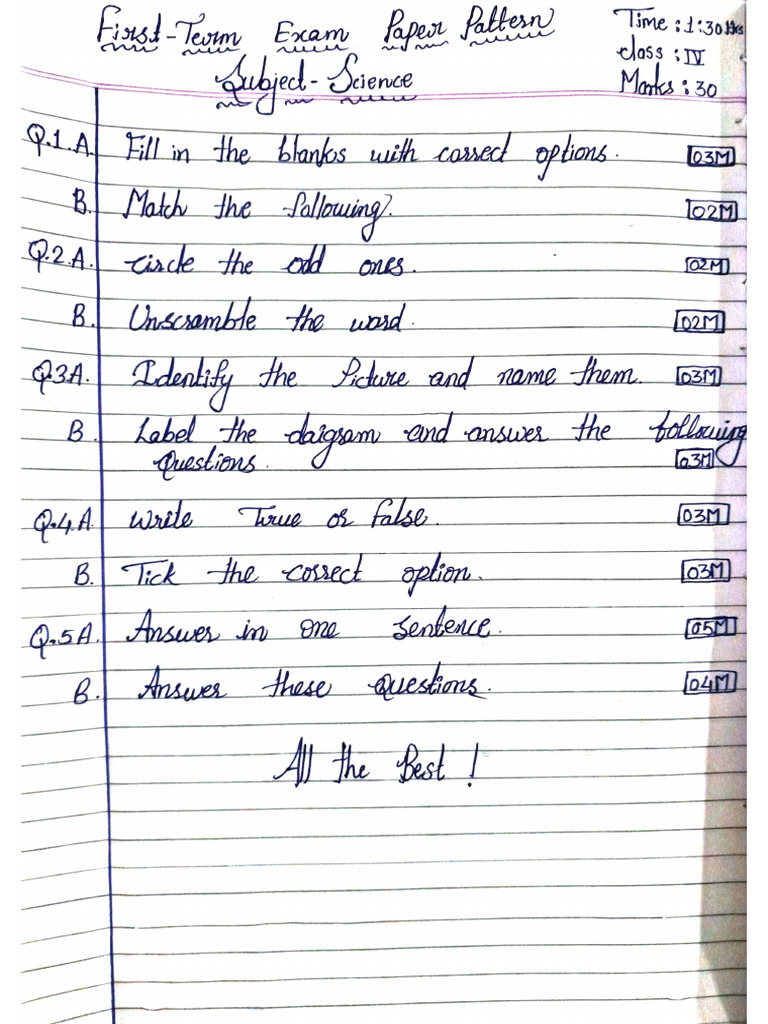 First-Term Exam Paper Pattern Time : 1:30 Hrs
Subject - Science class : IV
Marks : 30
Q.1.A. Fill in the blanks with correct options. 03M
B. Match the following. 02M
Q.2.A. circle the odd ones. 02M
B. Unscramble the word. 02M
Q.3.A. Identify the Picture and name them. 03M
B. Label the daigram and answer the following
Questions. 03M
Q.4.A. Write True or false. 03M
B. Tick the correct option. 03M
Q.5A. Answer in one sentence. 05M
B. Answer these Questions. 04M
All the Best !